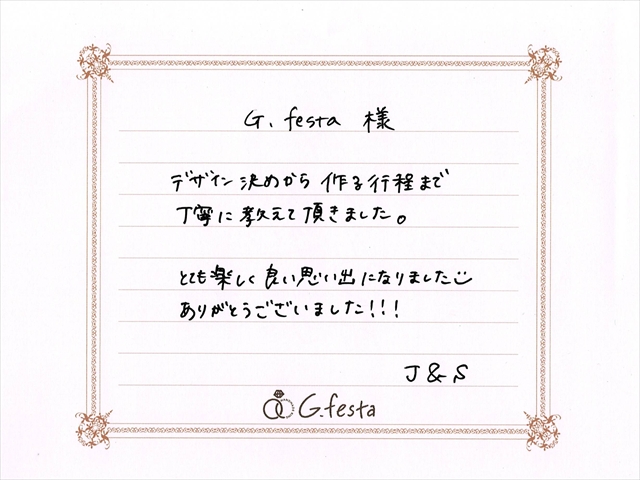 G. festa 様
デザイン決めから作る行程まで
丁寧に教えて頂きました。
とても楽しく良い思い出になりました
ありがとうございました!!!
J & S
G.festa